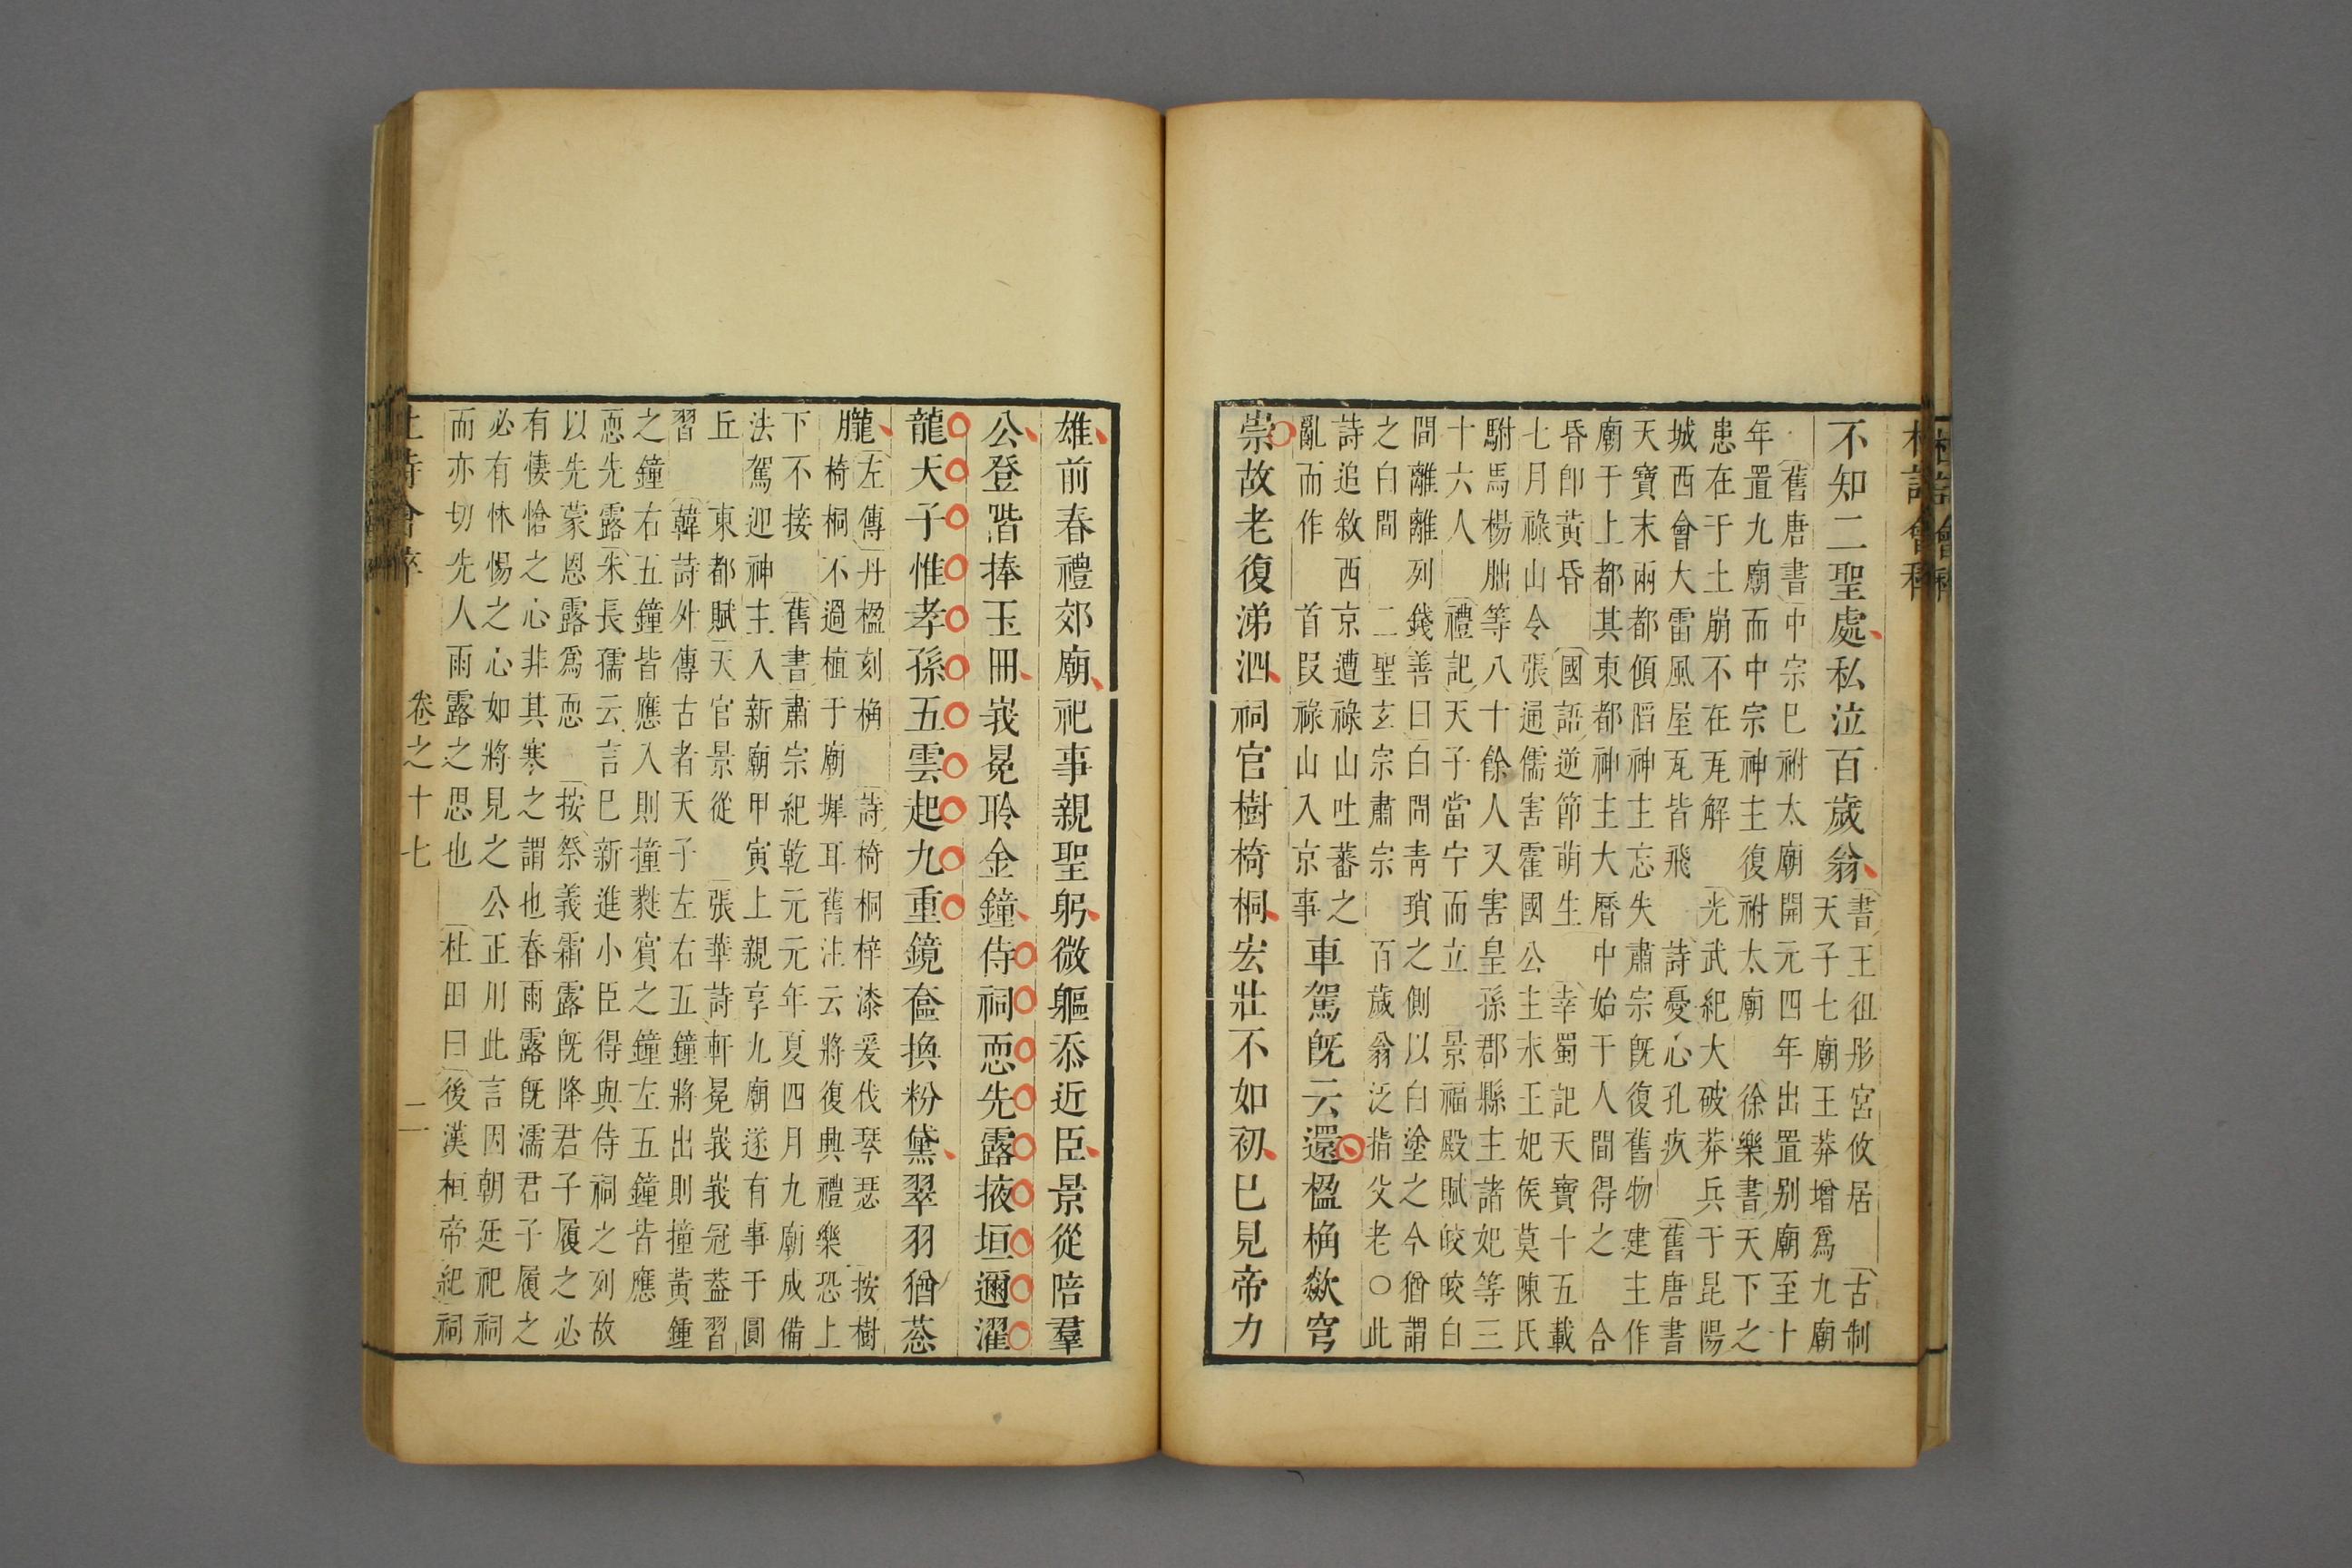 杜詩會稡
不知二聖處私泣百歲翁
書王徂彤宮攸居 古制
天子七廟王莽增爲九廟
舊唐書中宗巳祔太廟開元四年出置别廟至十
年置九廟而中宗神主復祔太廟 徐樂書天下之
患在于土崩不在瓦解 光武紀大破莽兵于昆陽
城西會大雷風屋瓦皆飛 詩憂心孔疚 舊唐書
天寶末兩都傾陷神主忘失肅宗旣復舊物建主作
廟于上都其東都神主大曆中始于人間得之 合
昏卽黃昏 國語逆節萌生 幸蜀記天寶十五載
七月祿山令張通儒害霍國公主末王妃侯莫陳氏
駙馬楊朏等八十餘人又害皇孫郡縣主諸妃等三
十六人 禮記天子當宁而立 景福殿賦皎皎白
間離離列錢善曰白間青瑣之側以白塗之今猶謂
之白間 二聖玄宗肅宗 百歲翁泛指父老○此
詩追敘西京遭祿山吐蕃之
亂而作 首叚祿山入京事
車駕旣云還楹桷歘穹
崇故老復涕泗祠官樹椅桐宏壯不如初巳見帝力
雄前春禮郊廟祀事親聖躬微軀忝近臣景從陪羣
公登堦捧玉冊峩冕聆金鐘侍祠恧先露掖垣邇濯
龍天子惟孝孫五雲起九重鏡奩換粉黛翠羽猶蔥
朧
左傳丹楹刻桷 詩椅桐梓漆爰伐琴瑟 按樹
椅桐不過植于廟墀耳舊注云將復典禮樂恐上
下不接 舊書肅宗紀乾元元年夏四月九廟成備
法駕迎神主入新廟甲寅上親享九廟遂有事于圓
丘 東都賦天官景從 張華詩軒冕峩峩冠蓋習
習 韓詩外傳古者天子左右五鐘將出則撞黃鍾
之鐘右五鐘皆應入則撞蕤賓之鐘左五鐘皆應
恧先露朱長孺云言巳新進小臣得與侍祠之列故
以先蒙恩露爲恧 按祭義霜露旣降君子履之必
有悽愴之心非其寒之謂也春雨露旣濡君子履之
必有怵惕之心如將見之公正用此言因朝廷祀祠
而亦切先人雨露之思也 杜田曰後漢桓帝紀祠
杜詩會稡 卷之十七 二